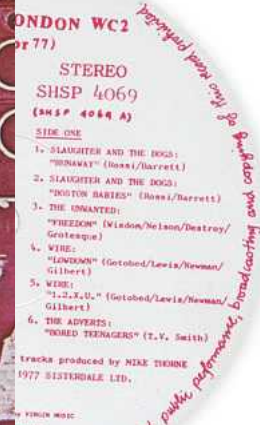 ONDON WC2
or 77)
STEREO
SHSP 4069
(SHSP 4069 A)
SIDE ONE
1. SLAUGHTER AND THE DOGS:
"RUNAWAY" (Rossi/Barrett)
2. SLAUGHTER AND THE DOGS:
"BOSTON BABIES" (Rossi/Barrett)
3. THE UNWANTED:
"FREEDOM" (Wisdom/Nelson/Destroy/
Grotesque)
4. WIRE:
"LOWDOWN" (Gotobed/Lewis/Newman/
Gilbert)
5. WIRE:
"1.2.X.U." (Gotobed/Lewis/Newman/
Gilbert)
6. THE ADVERTS:
"BORED TEENAGERS" (T.V. Smith)
tracks produced by MIKE THORNE
1977 SISTERDALE LTD.
by VIRGIN MUSIC
public performance, broadcasting and copying of this record prohibited.